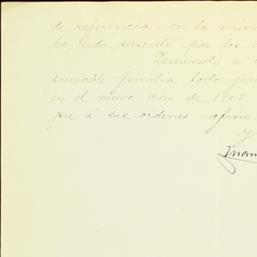 de referencia, en la mism
ha sido suscrito por los
Deseando a
preciable familia todo gen
en el nuevo año de 1907,
pre á sus ordenes afmo.
Y
Juan